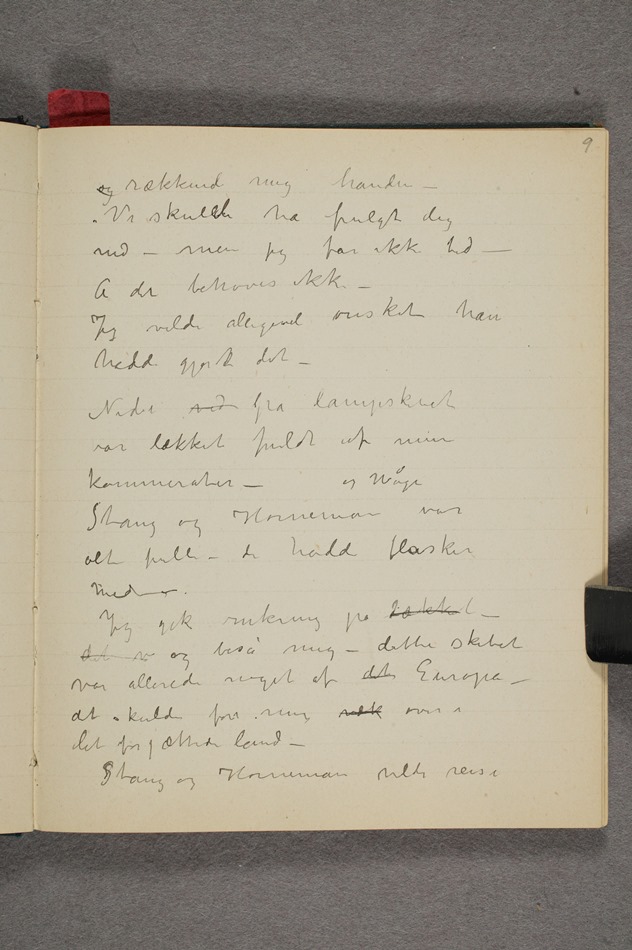 9
og rækkend mig handen –
Vi skulde ha fulgt dig
ned – men jeg har ikke tid –
A det behøves ikke –
Jeg vilde alligevel ønsket han
hadde gjort det –
Nede ved fra lampeskret
var dækket fuldt af mine
kammerater – og Wåge
Stang og Horneman var
alt fulle – de hadde flasker
med –.
Jeg gik omkring på dækket –
det v og beså mig – dette skibet
var allerede noget af det Europa –
det skulde føre mig væk over i
det forjættede land –
Stang og Horneman vilde reise